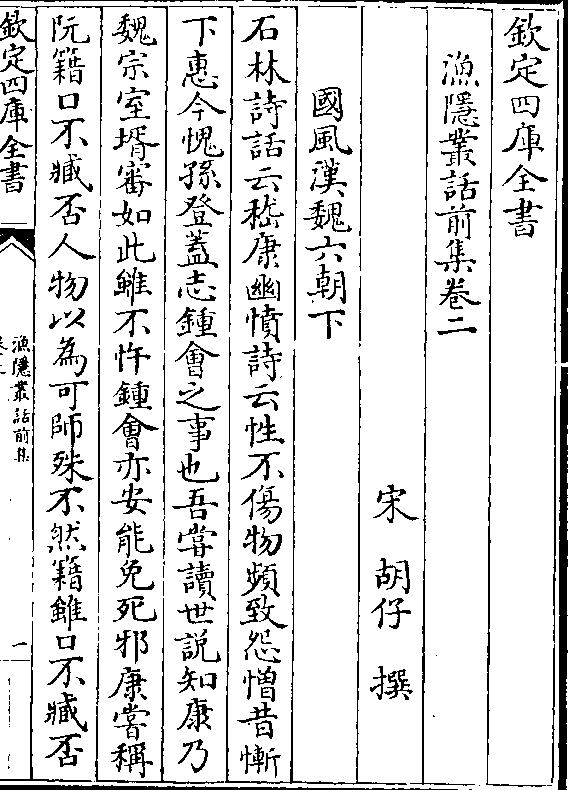 欽定四庫全書
漁隱叢話前集卷二
宋 胡仔 撰
國風漢魏六朝下
石林詩話云嵇康幽憤詩云性不傷物頻致怨憎昔慚
下惠今愧孫登蓋志鍾會之事也吾嘗讀世說知康乃
魏宗室壻審如此雖不忤鍾會亦安能免死邪康嘗稱
阮籍口不臧否人物以為可師殊不然籍雖口不臧否
欽定四庫全書
漁隱叢話前集
一